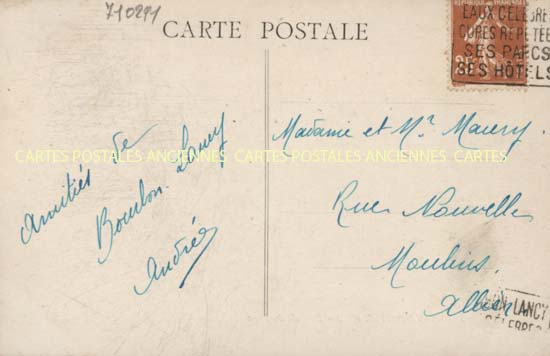 710291
CARTE POSTALE
EAUX CÉLÈBRES
CURES RÉPÉTÉE
SES PARCS
SES HÔTELS
25c
Amitiés de
Bourbon-Lancy.
André
Madame et Mr. Maury.
Rue Nouvelle
Moulins.
Allier
LANCY
CARTES POSTALES ANCIENNES CARTES POSTALES ANCIENNES CARTES